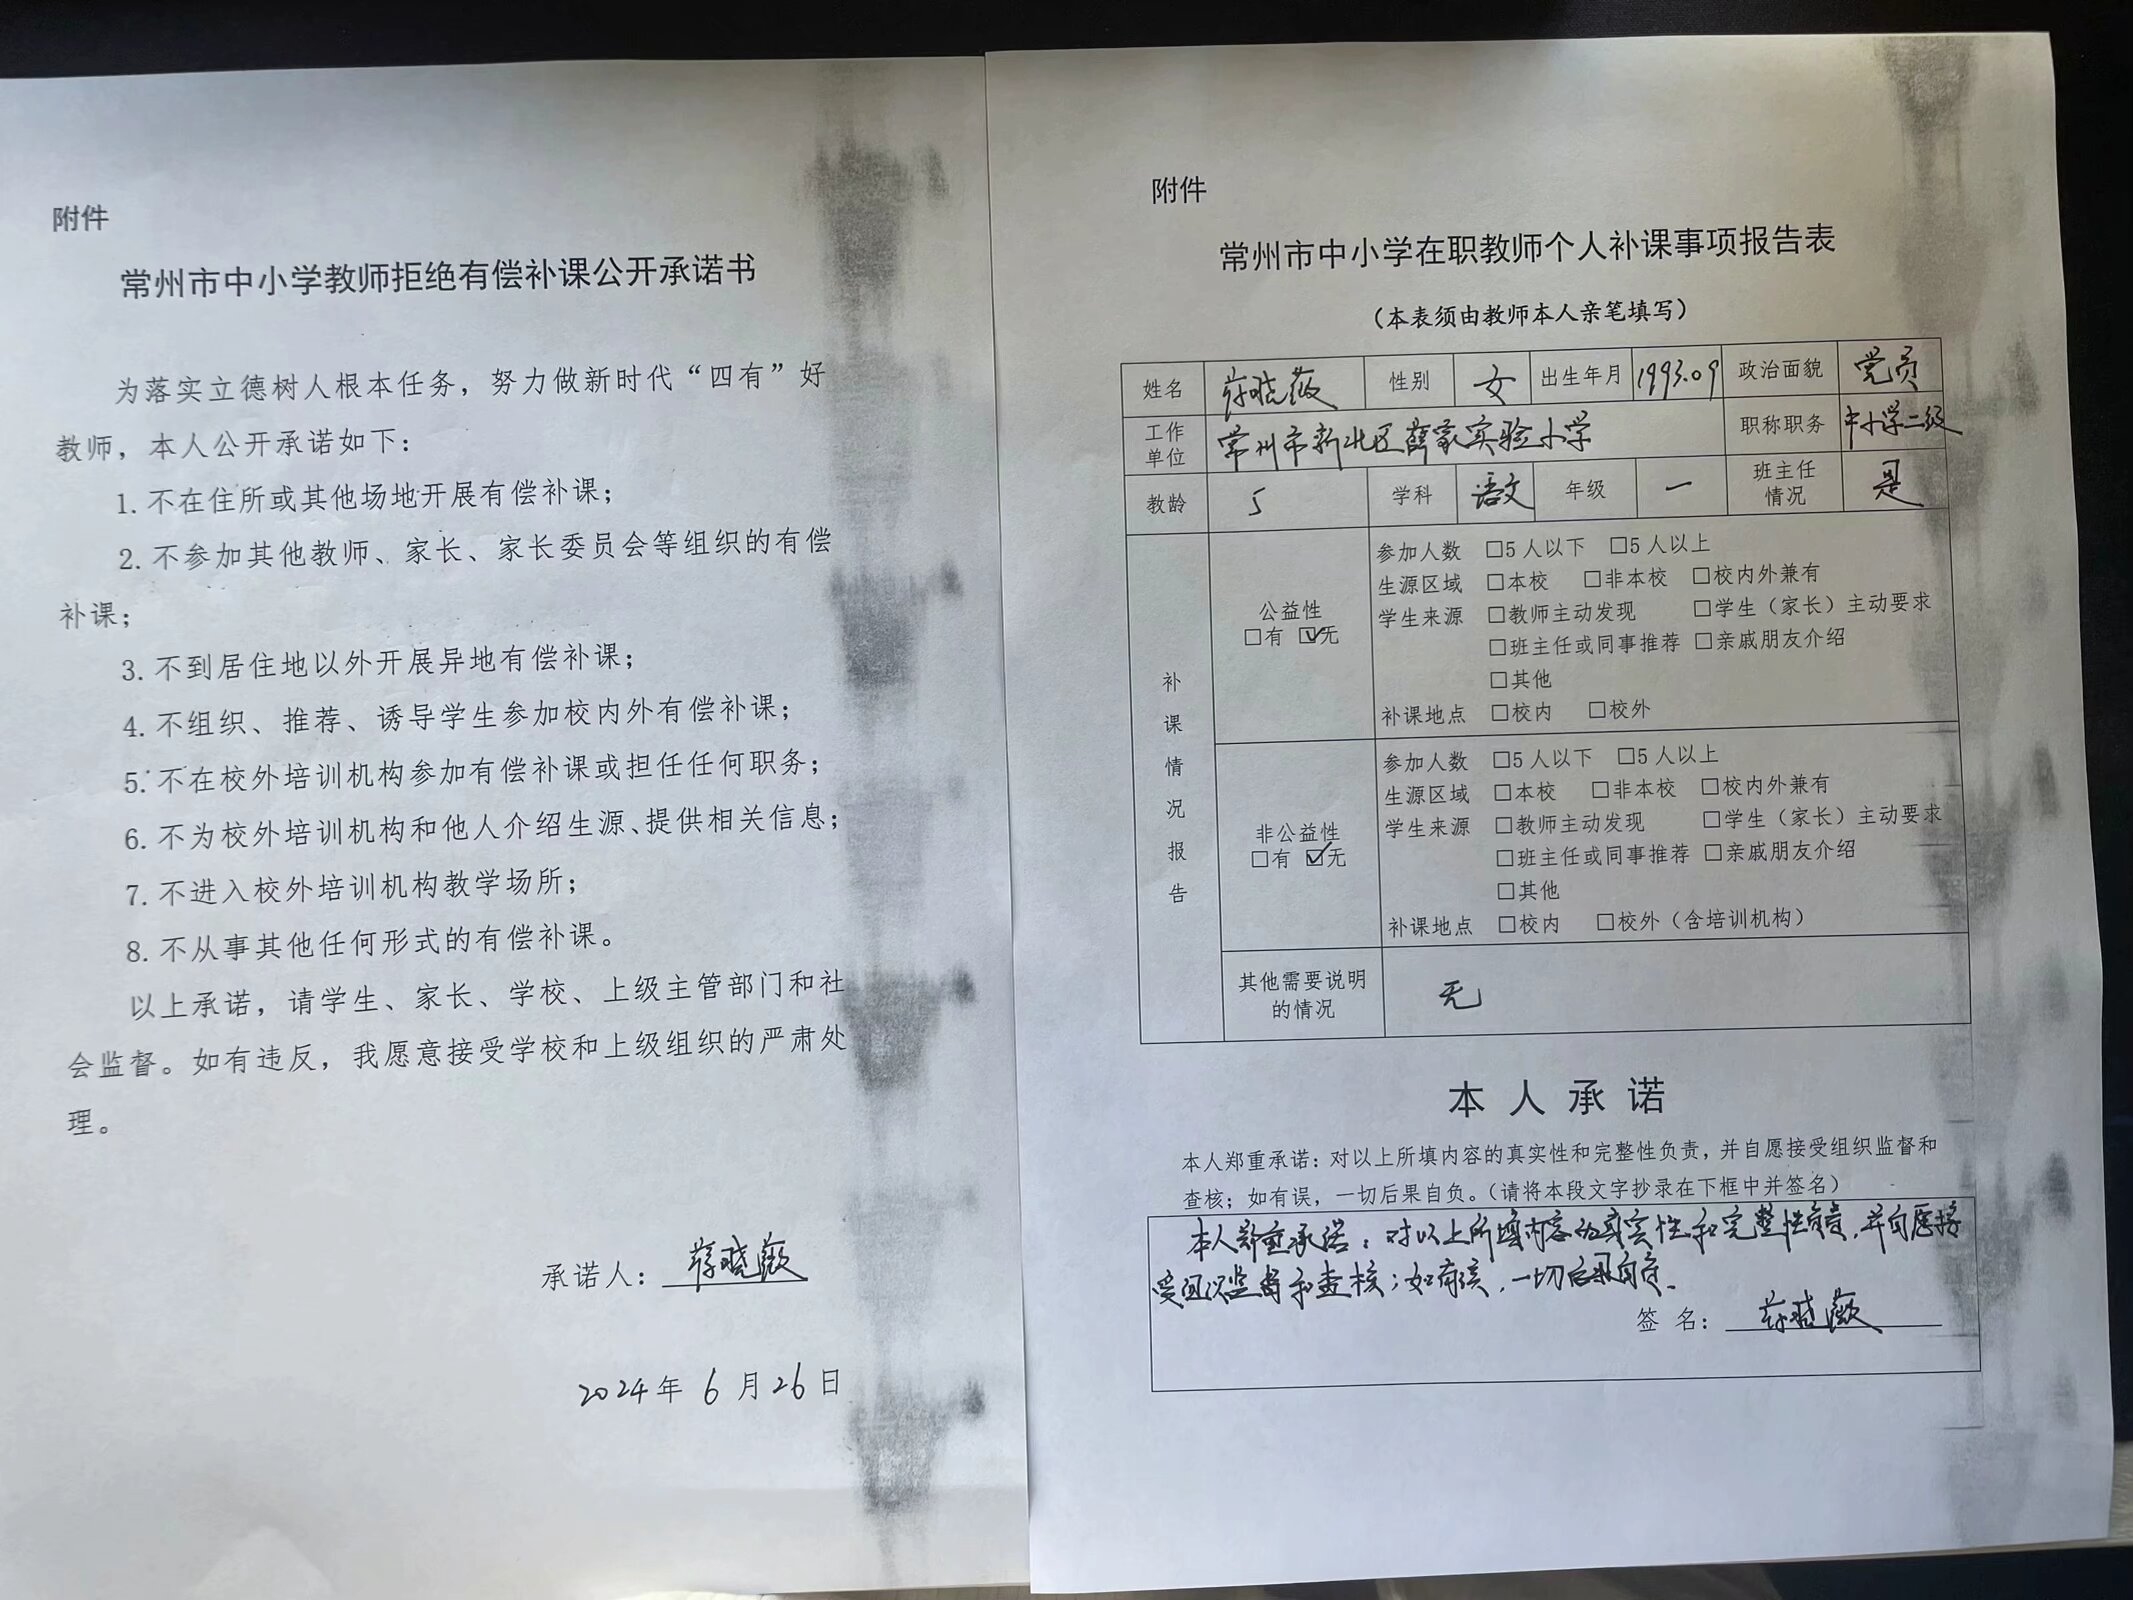 附件
常州市中小学教师拒绝有偿补课公开承诺书
为落实立德树人根本任务，努力做新时代“四有”好
教师，本人公开承诺如下：
1. 不在住所或其他场地开展有偿补课；
2. 不参加其他教师、家长、家长委员会等组织的有偿
补课；
3. 不到居住地以外开展异地有偿补课；
4. 不组织、推荐、诱导学生参加校内外有偿补课；
5. 不在校外培训机构参加有偿补课或担任任何职务；
6. 不为校外培训机构和他人介绍生源、提供相关信息；
7. 不进入校外培训机构教学场所；
8. 不从事其他任何形式的有偿补课。
以上承诺，请学生、家长、学校、上级主管部门和社
会监督。如有违反，我愿意接受学校和上级组织的严肃处
理。
承诺人：
2024年 6 月 26 日
附件
常州市中小学在职教师个人补课事项报告表
（本表须由教师本人亲笔填写）
姓名 晓薇 性别 女 出生年月 1993.09 政治面貌 党员
工作
单位 常州市新北区薛家实验小学 职称职务 中小学二级
教龄 5 学科 语文 年级 一 班主任
情况 是
补课情况报告
公益性
□有 ☑无
参加人数 □5 人以下 □5 人以上
生源区域 □本校 □非本校 □校内外兼有
学生来源 □教师主动发现 □学生（家长）主动要求
□班主任或同事推荐 □亲戚朋友介绍
□其他
补课地点 □校内 □校外
非公益性
□有 ☑无
参加人数 □5 人以下 □5 人以上
生源区域 □本校 □非本校 □校内外兼有
学生来源 □教师主动发现 □学生（家长）主动要求
□班主任或同事推荐 □亲戚朋友介绍
□其他
补课地点 □校内 □校外（含培训机构）
其他需要说明
的情况 无
本 人 承 诺
本人郑重承诺：对以上所填内容的真实性和完整性负责，并自愿接受组织监督和
查核；如有误，一切后果自负。（请将本段文字抄录在下框中并签名）
本人郑重承诺：对以上所填内容的真实性和完整性负责，并自愿接
受组织监督和查核；如有误，一切后果自负。
签 名：